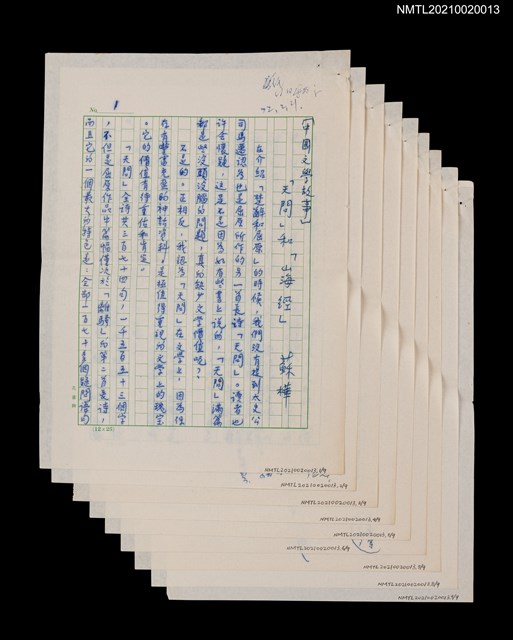 NMTL20210020013
No. 1
72.2.21.
「中國文學故事」
「天問」和「山海經」 蘇樺
在介紹「楚辭和屈原」的時候，我們沒有提到太史公
司馬遷認為也是屈原所作的另一首長詩「天問」。讀者也
許會懷疑，這是不是因為如有些書上說的，「天問」滿篇
都是些沒頭沒腦的問題，真的缺少文學價值呢？
不是的。正相反，我認為「天問」在文學上，因為保
存有豐富充盈的神話資料，是極值得重視的文學上的瑰寶
。它的價值有待重估和肯定。
「天問」全詩共三百七十四句，一千五百五十三個字
，不但是屈原作品中篇幅僅次於「離騷」的第二首長詩，
而且它的一個最大的特色是：全部一百七十多個疑問語句
(12×25)
NMTL20210020013.1/9
NMTL20210020013.2/9
NMTL20210020013.3/9
NMTL20210020013.4/9
NMTL20210020013.5/9
NMTL20210020013.6/9
NMTL20210020013.7/9
NMTL20210020013.8/9
NMTL20210020013.9/9